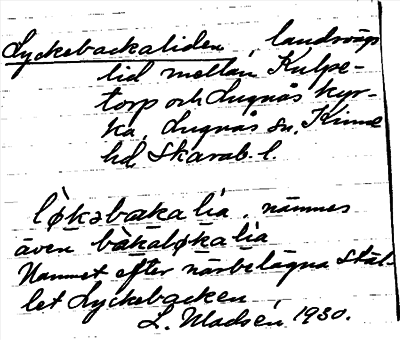 Lyckebackaliden, landsvägs
lid mellan Kulpe-
torp och Lugnås kyr-
ka, Lugnås sn, Kinne
hd Skarab. l.
lø̀kəbakalia. nämnes
även bàkaløkalia
Namnet efter närbelägna Stäl-
let Lyckebacken
L. Madsén, 1930.